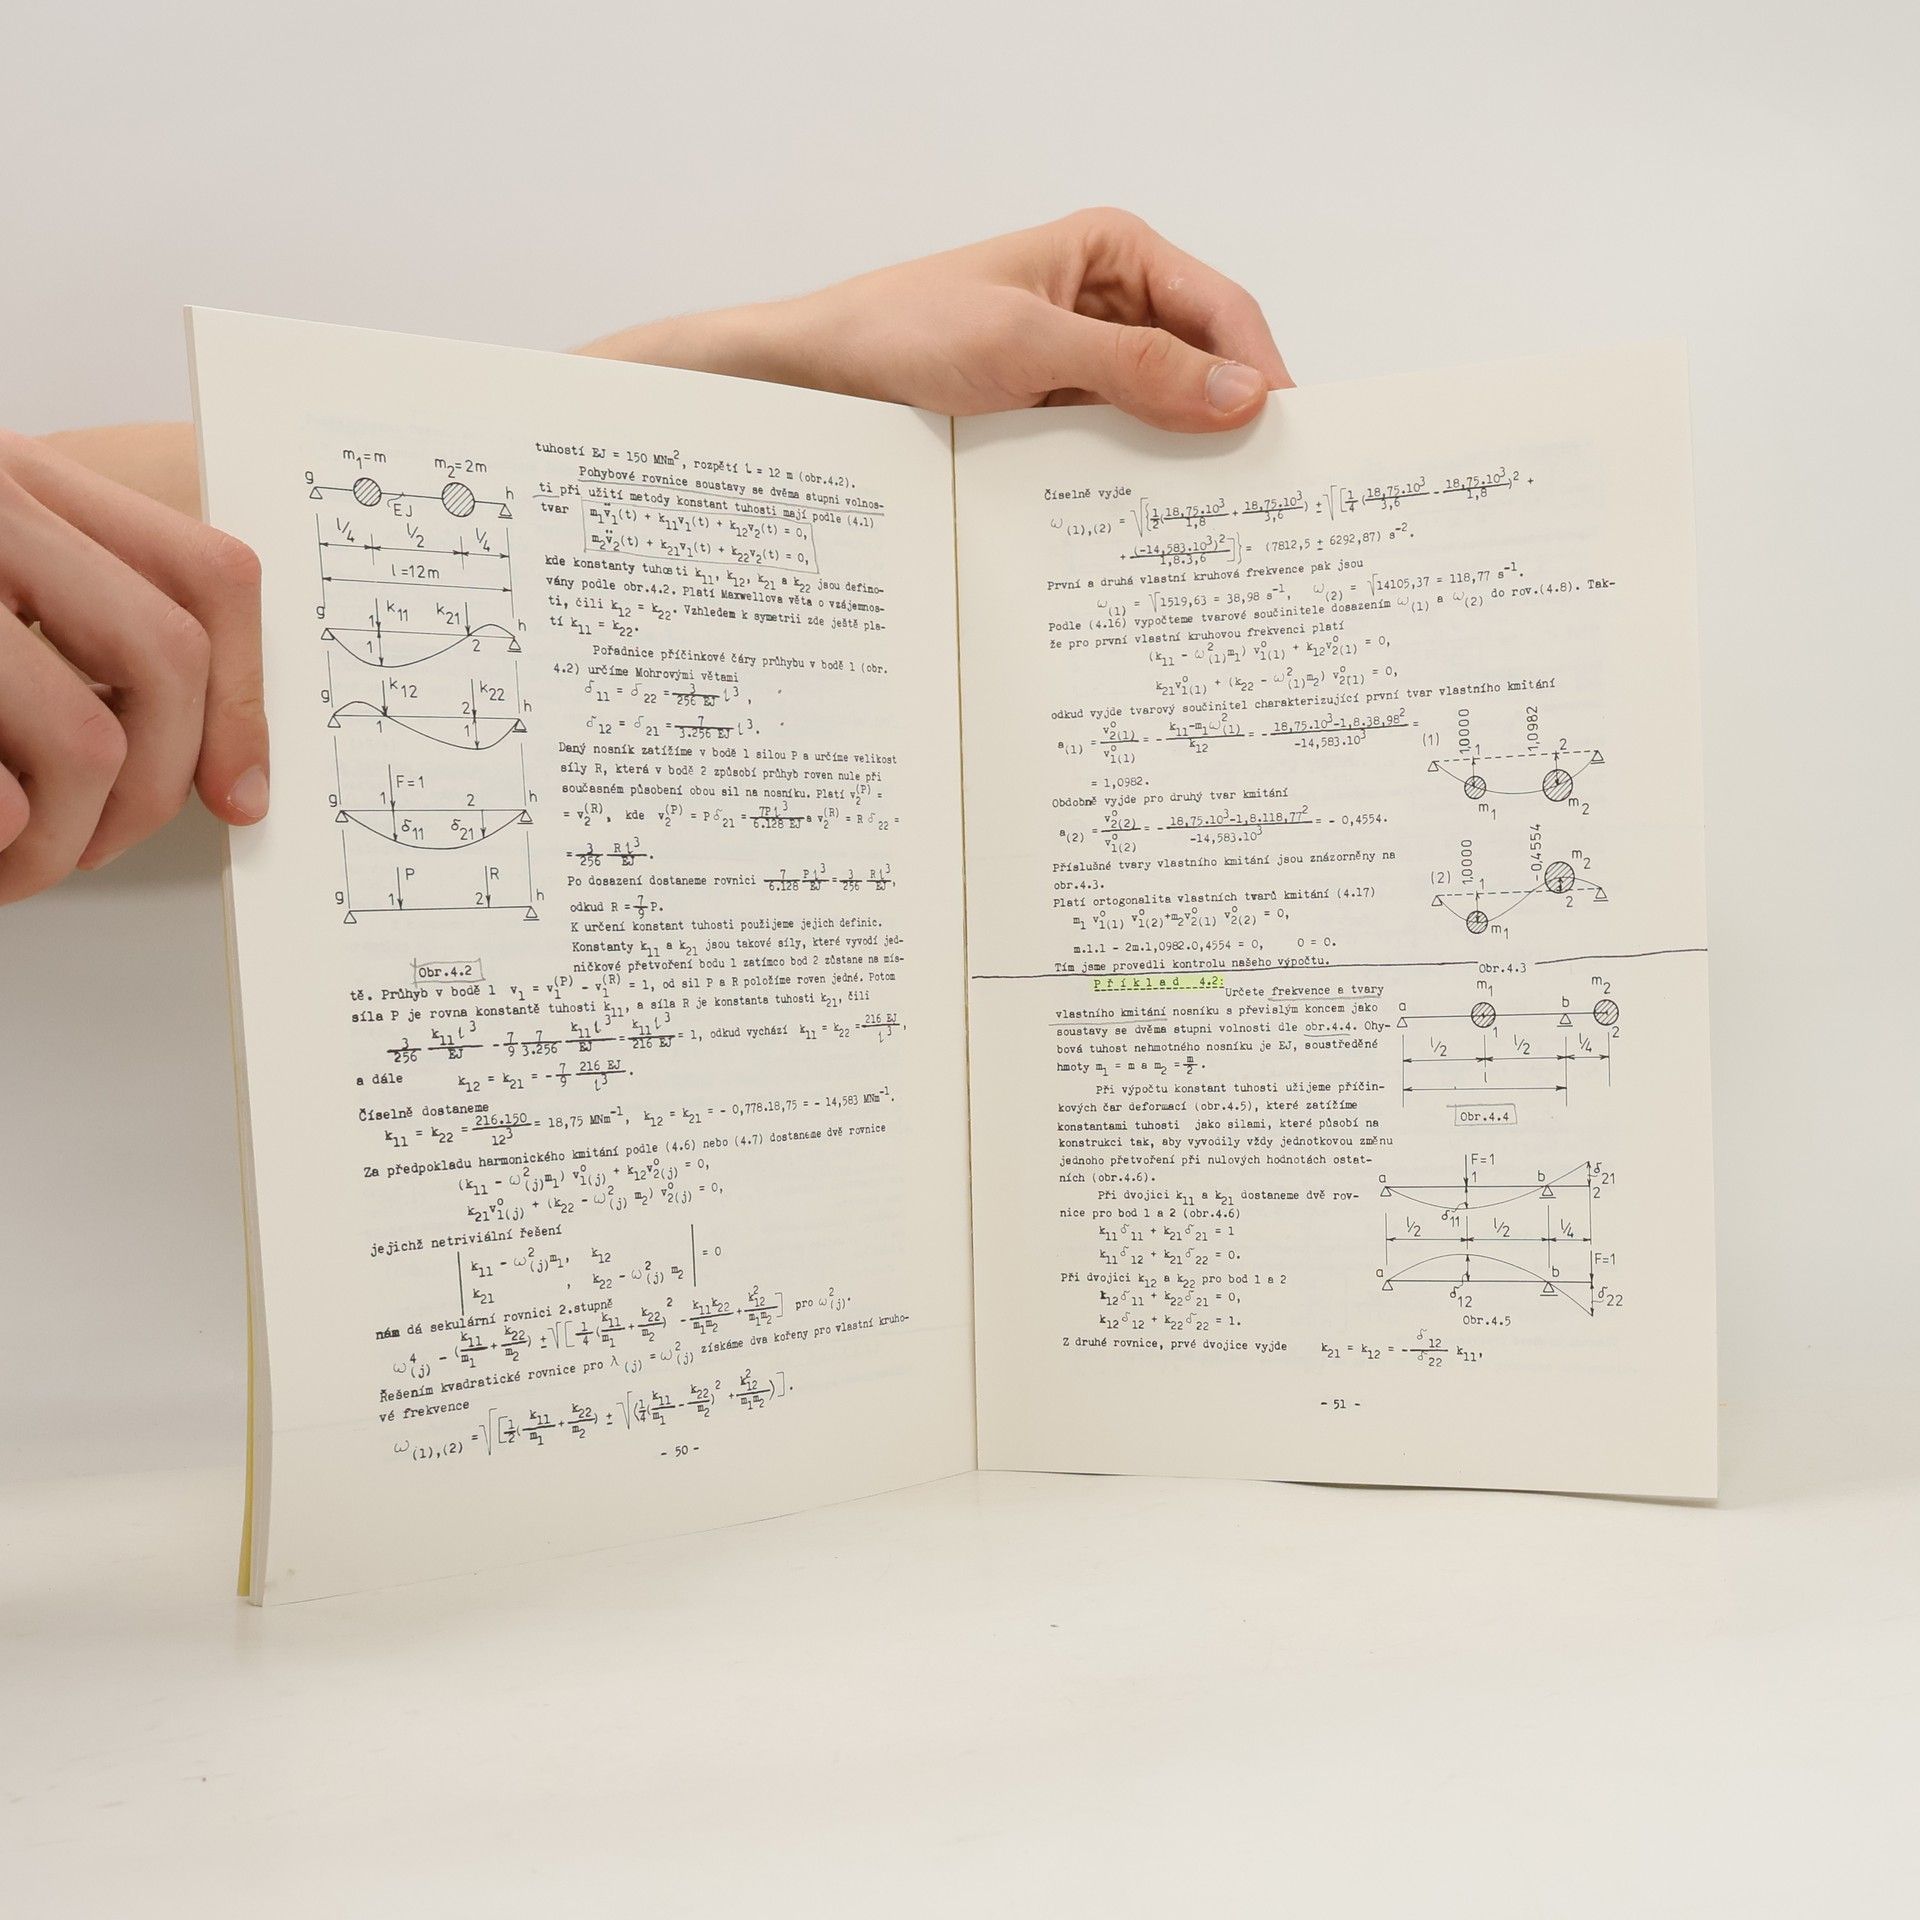 m₁=m
m₂=2m
g
h
EJ
l/4
l/2
l/4
l=12m
g
1
k₁₁
k₂₁
h
1
2
g
k₁₂
k₂₂
h
1
2
1
g
F=1
1
2
h
δ₁₁
δ₂₁
g
P
R
h
1
2
Obr.4.2
tuhostí EJ = 150 MNm², rozpětí l = 12 m (obr.4.2).
Pohybové rovnice soustavy se dvěma stupni volnos-
ti při užití metody konstant tuhosti mají podle (4.1)
tvar
m₁v̈₁(t) + k₁₁v₁(t) + k₁₂v₂(t) = 0,
m₂v̈₂(t) + k₂₁v₁(t) + k₂₂v₂(t) = 0,
kde konstanty tuhosti k₁₁, k₁₂, k₂₁ a k₂₂ jsou defino-
vány podle obr.4.2. Platí Maxwellova věta o vzájemnos-
ti, čili k₁₂ = k₂₂. Vzhledem k symetrii zde ještě pla-
tí k₁₁ = k₂₂.
Pořadnice příčinkové čáry průhybu v bodě 1 (obr.
4.2) určíme Mohrovými větami
δ₁₁ = δ₂₂ = 3/256 EJ l³,
δ₁₂ = δ₂₁ = 7/3.256 EJ l³.
Daný nosník zatížíme v bodě 1 silou P a určíme velikost
síly R, která v bodě 2 způsobí průhyb roven nule při
současném působení obou sil na nosníku. Platí v₂^(P) =
= v₂^(R), kde v₂^(P) = P δ₂₁ = 7Pl³/6.128 EJ a v₂^(R) = R δ₂₂ =
= 3/256 Rl³/EJ.
Po dosazení dostaneme rovnici 7/6.128 Pl³/EJ = 3/256 Rl³/EJ,
odkud R = 7/9 P.
K určení konstant tuhosti použijeme jejich definic.
Konstanty k₁₁ a k₂₁ jsou takové síly, které vyvodí jed-
ničkové přetvoření bodu 1 zatímco bod 2 zůstane na mís-
tě. Průhyb v bodě 1 v₁ = v₁^(P) - v₁^(R) = 1, od sil P a R položíme roven jedné. Potom
síla P je rovna konstantě tuhosti k₁₁, a síla R je konstanta tuhosti k₂₁, čili
3/256 k₁₁l³/EJ - 7/9 7/3.256 k₁₁l³/EJ = k₁₁l³/216 EJ = 1, odkud vychází k₁₁ = k₂₂ = 216 EJ/l³,
a dále k₁₂ = k₂₁ = - 7/9 216 EJ/l³.
Číselně dostaneme
k₁₁ = k₂₂ = 216.150/12³ = 18,75 MNm⁻¹, k₁₂ = k₂₁ = - 0,778.18,75 = - 14,583 MNm⁻¹.
Za předpokladu harmonického kmitání podle (4.6) nebo (4.7) dostaneme dvě rovnice
(k₁₁ - ω²(j)m₁) v°₁(j) + k₁₂v°₂(j) = 0,
k₂₁v°₁(j) + (k₂₂ - ω²(j) m₂) v°₂(j) = 0,
jejichž netriviální řešení
| k₁₁ - ω²(j)m₁, k₁₂ |
| k₂₁ , k₂₂ - ω²(j) m₂ | = 0
nám dá sekulární rovnici 2.stupně
ω⁴(j) - (k₁₁/m₁ + k₂₂/m₂) ± √[1/4(k₁₁/m₁ + k₂₂/m₂)² - k₁₁k₂₂/m₁m₂ + k²₁₂/m₁m₂] pro ω²(j).
Řešením kvadratické rovnice pro λ(j) = ω²(j) získáme dva kořeny pro vlastní kruho-
vé frekvence
ω(1),(2) = √[1/2(k₁₁/m₁ + k₂₂/m₂) ± √(1/4(k₁₁/m₁ - k₂₂/m₂)² + k²₁₂/m₁m₂)].
- 50 -
Číselně vyjde
ω(1),(2) = √{1/2(18,75.10³/1,8 + 18,75.10³/3,6) ± √[1/4 (18,75.10³/3,6 - 18,75.10³/1,8)² +
+ (-14,583.10³)²/1,8.3,6]} = (7812,5 ± 6292,87) s⁻².
První a druhá vlastní kruhová frekvence pak jsou
ω(1) = √1519,63 = 38,98 s⁻¹, ω(2) = √14105,37 = 118,77 s⁻¹.
Podle (4.16) vypočteme tvarové součinitele dosazením ω(1) a ω(2) do rov.(4.8). Tak-
že pro první vlastní kruhovou frekvenci platí
(k₁₁ - ω²(1)m₁) v°₁(1) + k₁₂v°₂(1) = 0,
k₂₁v°₁(1) + (k₂₂ - ω²(1)m₂) v°₂(1) = 0,
odkud vyjde tvarový součinitel charakterizující první tvar vlastního kmitání
a(1) = v°₂(1)/v°₁(1) = - k₁₁-m₁ω²(1)/k₁₂ = - 18,75.10³-1,8.38,98²/-14,583.10³ =
= 1,0982.
Obdobně vyjde pro druhý tvar kmitání
a(2) = v°₂(2)/v°₁(2) = - 18,75.10³-1,8.118,77²/-14,583.10³ = - 0,4554.
Příslušné tvary vlastního kmitání jsou znázorněny na
obr.4.3.
Platí ortogonalita vlastních tvarů kmitání (4.17)
m₁ v°₁(1) v°₁(2)+m₂v°₂(1) v°₂(2) = 0,
m.1.1 - 2m.1,0982.0,4554 = 0, 0 = 0.
Tím jsme provedli kontrolu našeho výpočtu.
(1)
1,0000
1,0982
1
2
m₁
m₂
(2)
1,0000
-0,4554
1
m₂
2
m₁
Obr.4.3
Příklad 4.2:
Určete frekvence a tvary
vlastního kmitání nosníku s převislým koncem jako
soustavy se dvěma stupni volnosti dle obr.4.4. Ohy-
bová tuhost nehmotného nosníku je EJ, soustředěné
hmoty m₁ = m a m₂ = m/2.
Při výpočtu konstant tuhosti užijeme příčin-
kových čar deformací (obr.4.5), které zatížíme
konstantami tuhosti jako silami, které působí na
konstrukci tak, aby vyvodily vždy jednotkovou změnu
jednoho přetvoření při nulových hodnotách ostat-
ních (obr.4.6).
Při dvojici k₁₁ a k₂₁ dostaneme dvě rov-
nice pro bod 1 a 2 (obr.4.6)
k₁₁δ₁₁ + k₂₁δ₂₁ = 1
k₁₁δ₁₂ + k₂₁δ₂₂ = 0.
Při dvojici k₁₂ a k₂₂ pro bod 1 a 2
k₁₂δ₁₁ + k₂₂δ₂₁ = 0,
k₁₂δ₁₂ + k₂₂δ₂₂ = 1.
Z druhé rovnice, prvé dvojice vyjde k₂₁ = k₁₂ = - δ₁₂/δ₂₂ k₁₁,
m₁
m₂
a
b
1
2
l/2
l/2
l/4
l
Obr.4.4
F=1
a
1
b
δ₂₁
2
δ₁₁
l/2
l/2
l/4
F=1
a
b
δ₁₂
δ₂₂
Obr.4.5
- 51 -